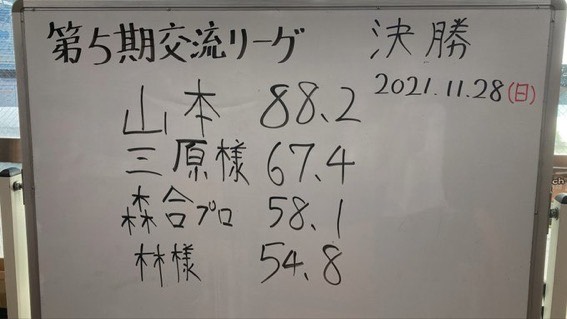 第5期交流リーグ 決勝
2021.11.28(日)
山本 88.2
三原様 67.4
森合プロ 58.1
林様 54.8